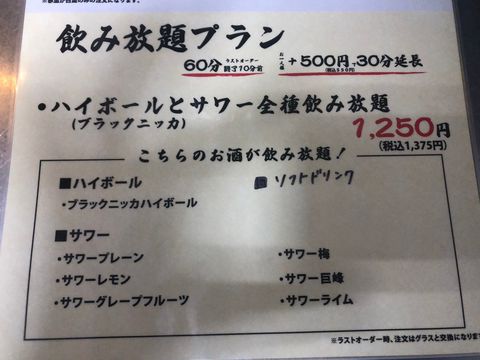 ※飲放題は着席のみの注文になります。
飲み放題プラン
60分 ラストオーダー 終了10分前 お一人様 +500円で30分延長
(税込550円)
・ハイボールとサワー全種飲み放題
(ブラックニッカ)
1,250円
(税込1,375円)
こちらのお酒が飲み放題!
■ハイボール
・ブラックニッカハイボール
■ソフトドリンク
■サワー
・サワープレーン
・サワーレモン
・サワーグレープフルーツ
・サワー梅
・サワー巨峰
・サワーライム
※ラストオーダー時、注文はグラスと交換になります